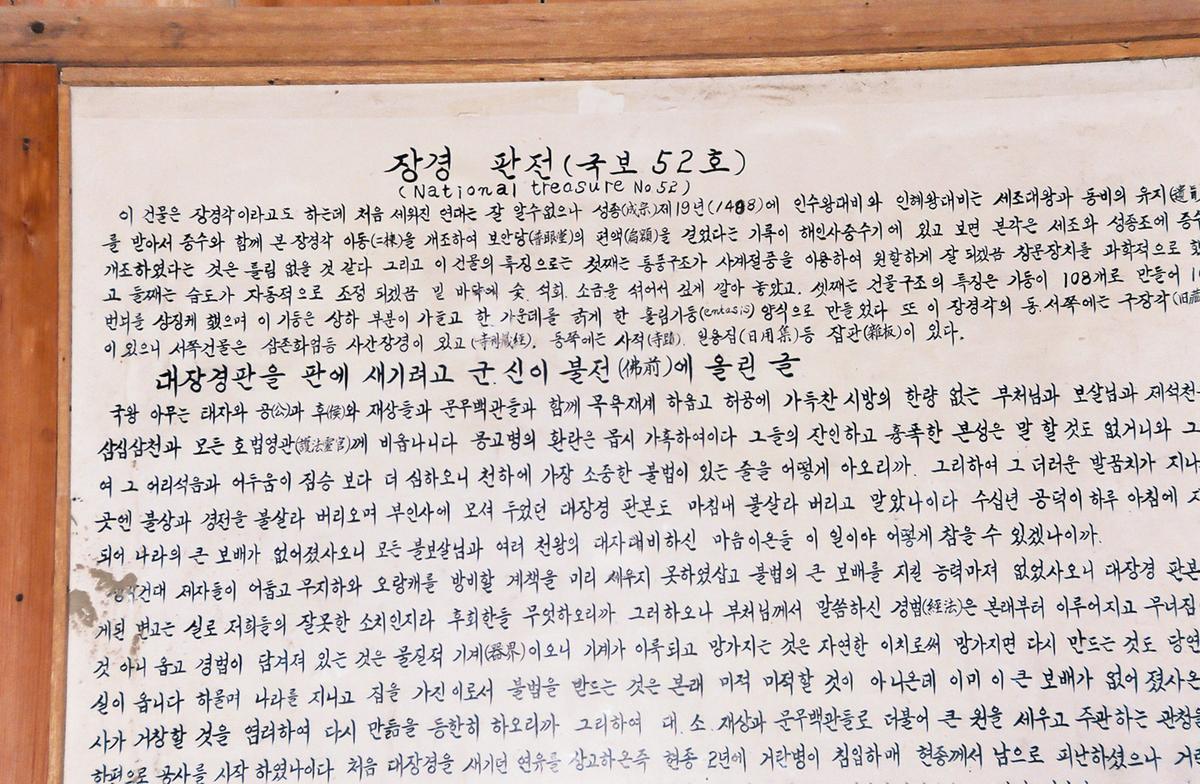 장경 판전(국보 52호)
(National treasure No 52)
이 건물은 장경각이라고도 하는데 처음 세워진 연대는 잘 알수없으나 성종(成宗)제19년(1488)에 인수왕대비와 인혜왕대비는 세조대왕과 동비의 유지(遺
를 받아서 중수와 함께 본장경각 이동(二棟)을 개조하여 보안당(普眼堂)의 편액(扁額)을 걸었다는 기록이 해인사중수기에 있고 보면 본각은 세조와 성종조에 중
개조하였다는 것은 틀림 없을 것 같다 그리고 이 건물의 특징으로는 첫째는 통풍구조가 사계절풍을 이용하여 원할하게 잘 되겠끔 창문장치를 과학적으로
고 둘째는 습도가 자동적으로 조정 되겠끔 밑 바닥에 숯. 석회. 소금을 섞어서 깊게 깔아 놓았고. 셋째는 건물구조의 특징은 기둥이 108개로 만들어
번뇌를 상징케 했으며 이 기둥은 상하 부분이 가늘고 한 가운데를 굵게 한 흘림기둥(entasis) 양식으로 만들었다 또 이 장경각의 동.서쪽에는 구장각(旧藏
이 있으니 서쪽건물은 삼존화엄등 사간장경이 있고 (寺刊藏経). 동쪽에는 사적(寺蹟). 일용집(日用集)등 집판(雜板)이 있다.
대장경판을 판에 새기려고 군.신이 불전(佛前)에 올린 글
국왕 아무는 태자와 공(公)과 후(侯)와 재상들과 문무백관들과 함께 목욕재계 하옵고 허공에 가득찬 시방의 한량 없는 부처님과 보살님과 제석천
삼십삼천과 모든 호법영관(護法靈官)께 비옵나니다 몽고병의 환란은 몹시 가혹하여이다 그들의 잔인하고 흉폭한 본성은 말 할 것도 없거니와 그
여 그 어리석음과 어두움이 짐승 보다 더 심하오니 천하에 가장 소중한 불법이 있는 줄을 어떻게 아오리까. 그리하여 그 더러운 발꿈치가 지나
곳엔 불상과 경전을 불살라 버리오며 부인사에 모셔 두었던 대장경 판본도 마침내 불살라 버리고 말았나이다 수십년 공덕이 하루 아침에
되어 나라의 큰 보배가 없어졌사오니 모든 불보살님과 여러 천왕의 대자대비하신 마음이온들 이 일이야 어떻게 참을 수 있겠나이까.
건대 제자들이 어둡고 무지하와 오랑캐를 방비할 계책을 미리 세우지 못하였삽고 불법의 큰 보배를 지킬 능력마저 없었사오니 대장경 판본
게된 변고는 실로 저희들의 잘못한 소치인지라 후회한들 무엇하오리까 그러하오나 부처님께서 말씀하신 경법(経法)은 본래부터 이루어지고 무너짐
것 아니 옵고 경법이 담겨져 있는 것은 물질적 기계(器界)이오니 기계가 이룩되고 망가지는 것은 자연한 이치로써 망가지면 다시 만드는 것도 당연
실이 옵니다 하물며 나라를 지니고 집을 가진이로서 불법을 받드는 것은 본래 미적 미적할 것이 아니온데 이미 이 큰 보배가 없어 졌사온
사가 거창할 것을 염려하여 다시 만듦을 등한히 하오리까 그리하여 대.소.재상과 문무백관들로 더불어 큰 원을 세우고 주관하는 관청
하편으로 공사를 시작 하였나이다. 처음 대장경을 새기던 연유를 상고하온즉 현종 2년에 거란병이 침입하매 현종께서 남으로 피난하셨으나